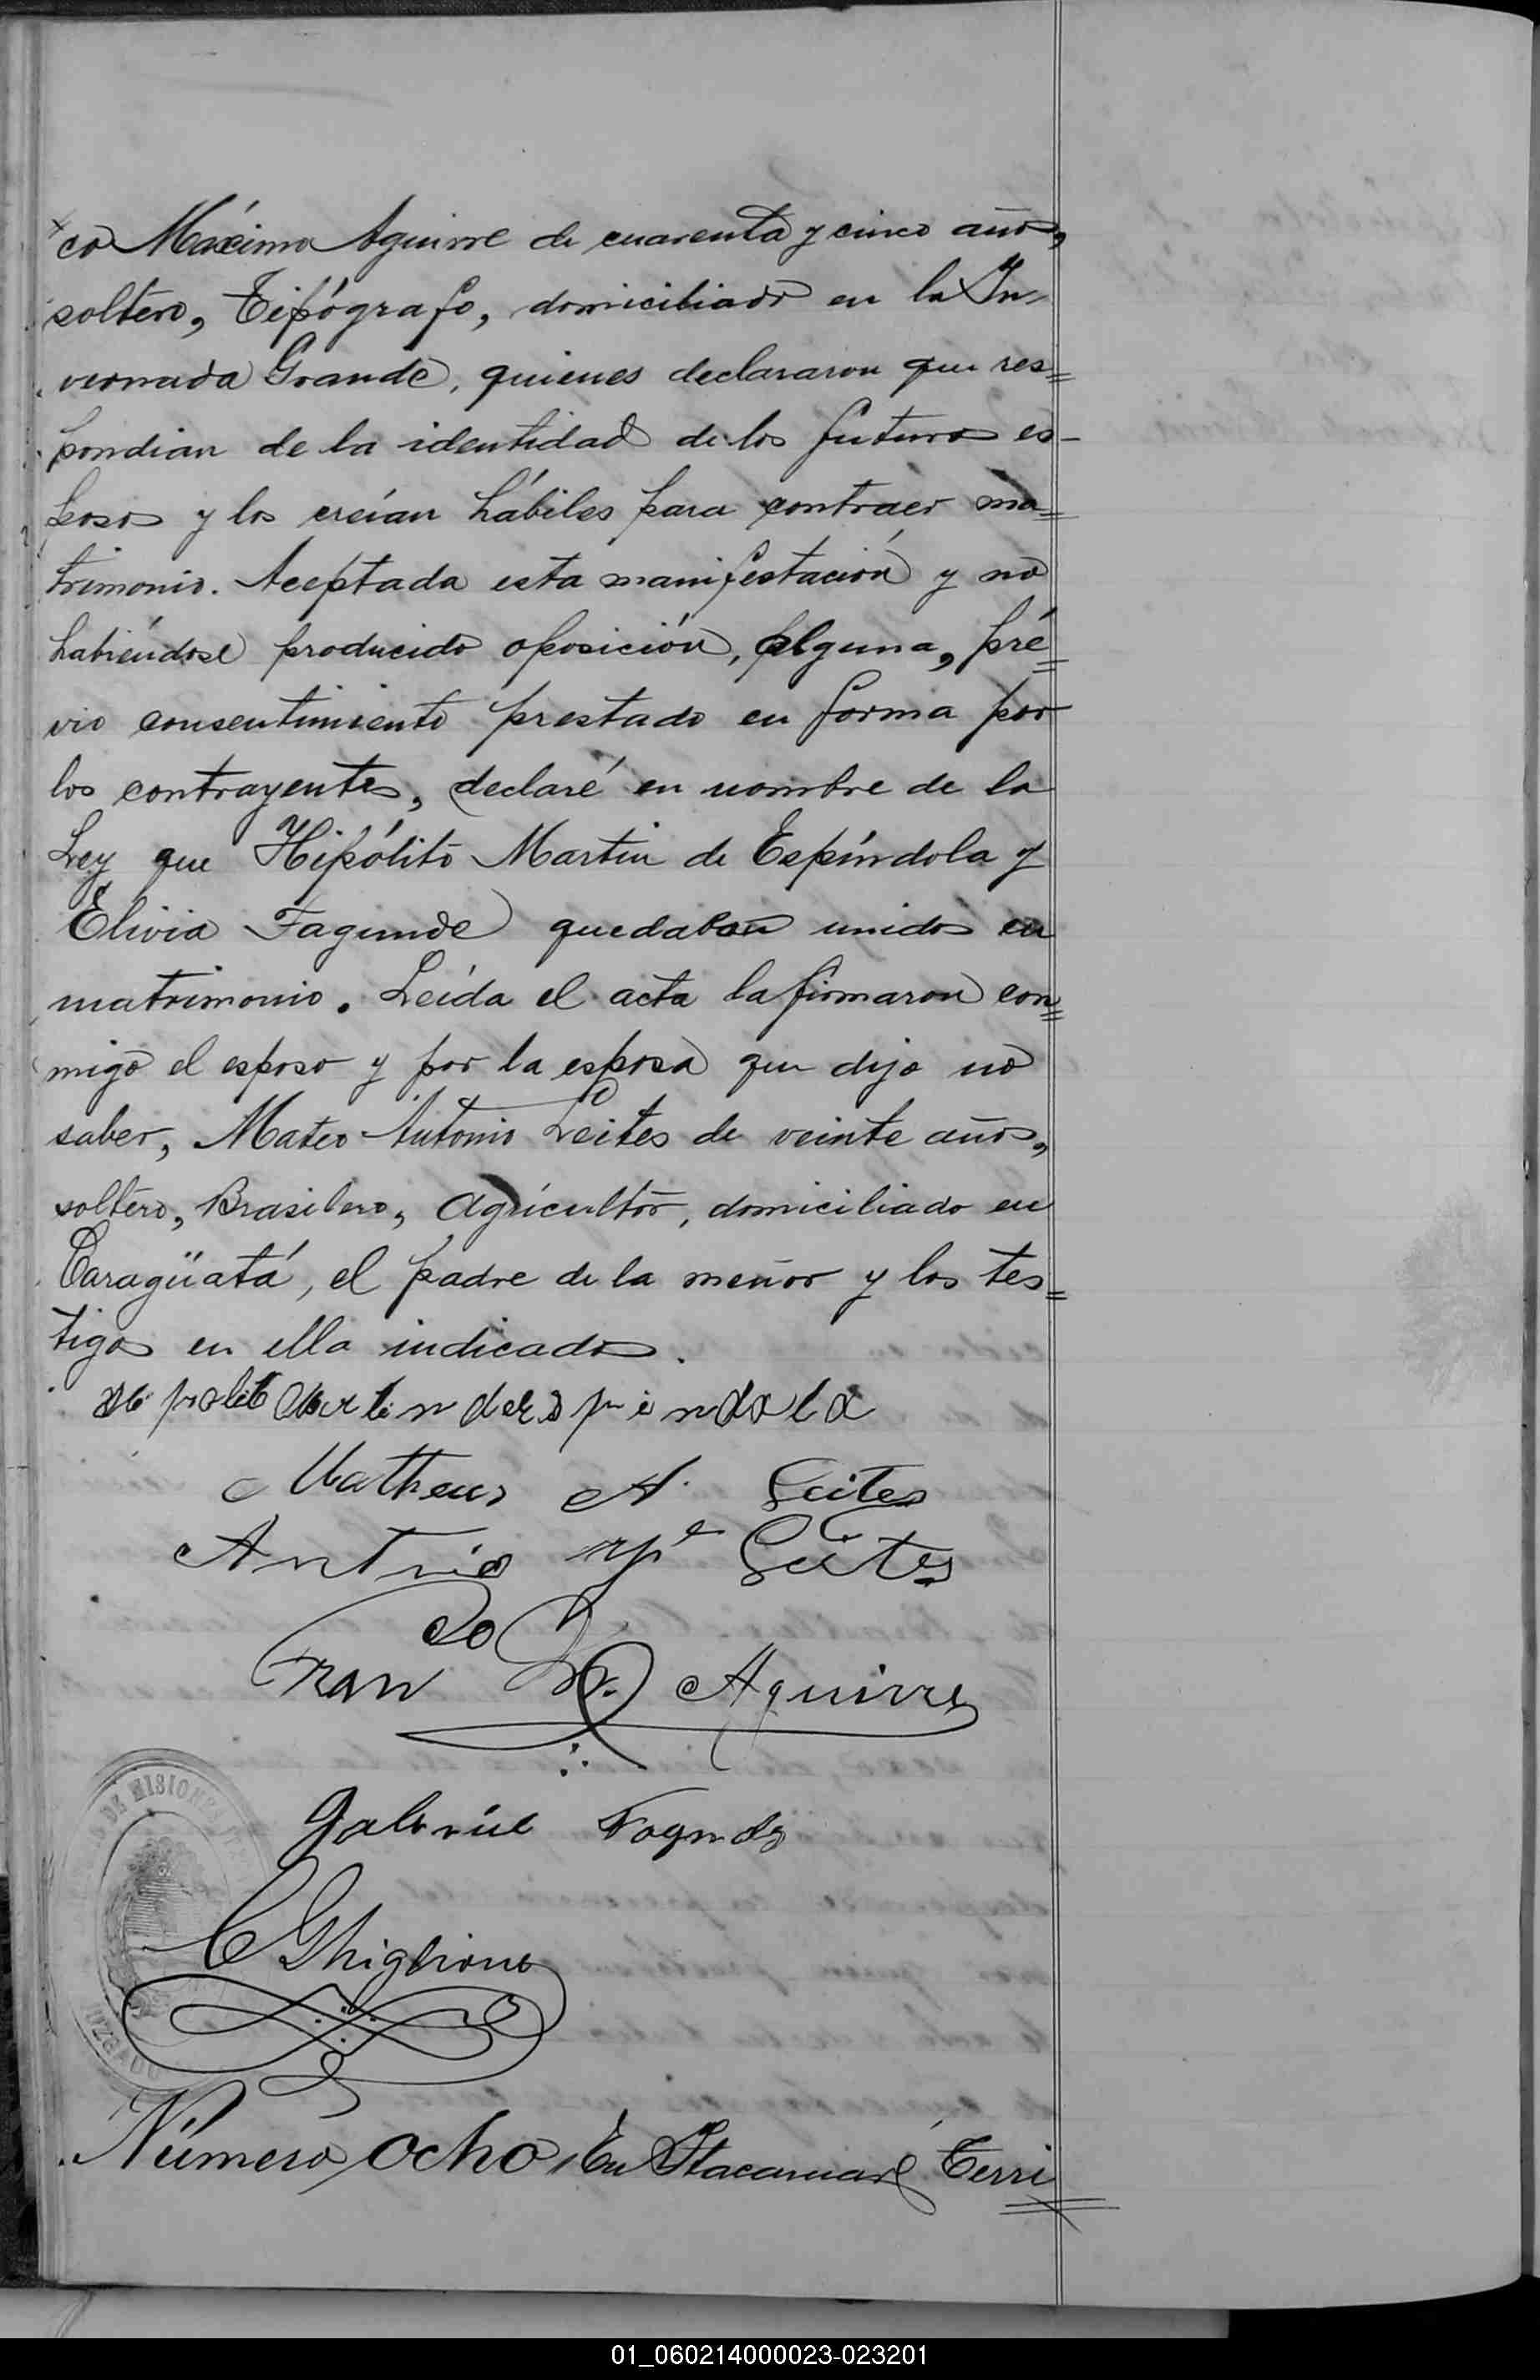 co Máximo Aguirre de cuarenta y cinco años,
soltero, Tipógrafo, domiciliado en la In-
vernada Grande, quienes declararon que res=
pondian de la identidad de los futuros es-
posos y los creían hábiles para contraer ma=
trimonio. Aceptada esta manifestación y no
habiéndose producido oposición, alguna, pré=
vio consentimiento prestado en forma por
los contrayentes, declaré en nombre de la
Ley que Hipólito Martin de Espíndola y
Elivia Fagunde quedaban unidos en
matrimonio. Leída el acta la firmaron con=
migo el esposo y por la esposa que dijo no
saber, Mateo Antonio Leites de veinte años,
soltero, Brasilero, Agricultor, domiciliado en
Caragüatá, el padre de la menor y los tes=
tigos en ella indicados.
Matheus A. Leites
Antnio Leites
Fran Aguirre
Gabriúl Fagnds
C Ghiglione
DE MISIONES
JUZGADO
Número ocho En Itacaruaré Terri=
01_060214000023-023201